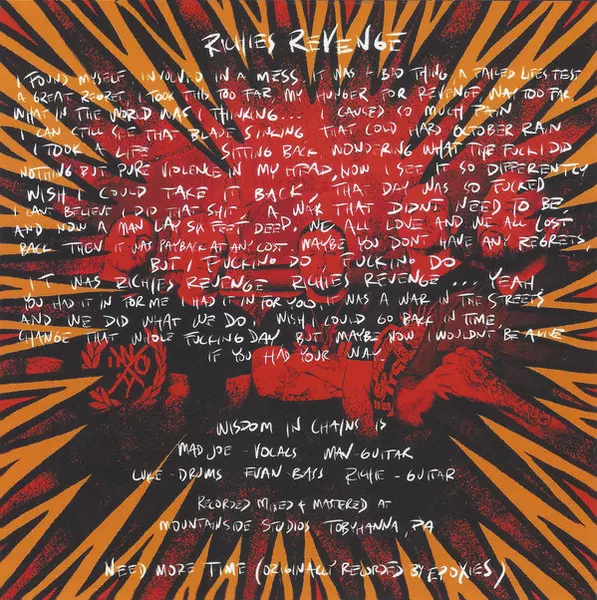 RICHIES REVENGE
I FOUND MYSELF INVOLVED IN A MESS IT WAS A BAD THING A FAILED LIFES TEST
A GREAT REGRET, I TOOK THIS TOO FAR MY HUNGER FOR REVENGE WAY TOO FAR
WHAT IN THE WORLD WAS I THINKING... CAUSED SO MUCH PAIN
I CAN STILL SEE THAT BLADE SINKING THAT COLD HARD OCTOBER RAIN
I TOOK A LIFE SITTING BACK WONDERING WHAT THE FUCK I DID
NOTHING BUT PURE VIOLENCE IN MY HEAD, NOW I SEE IT SO DIFFERENTLY
WISH I COULD TAKE IT BACK, THAT DAY WAS SO FUCKED
I CANT BELIEVE I DID THAT SHIT, A WAR THAT DIDNT NEED TO BE
AND NOW A MAN LAY SIX FEET DEEP, WE ALL LOVE AND WE ALL LOST
BACK THEN IT WAS PAYBACK AT ANY COST. MAYBE YOU DONT HAVE ANY REGRETS,
BUT I FUCKING DO FUCKING DO
IT WAS RICHIES REVENGE RICHIES REVENGE ... YEAH,
YOU HAD IT IN FOR ME I HAD IT IN FOR YOU IT WAS A WAR IN THE STREETS
AND WE DID WHAT WE DO, WISH I COULD GO BACK IN TIME,
CHANGE THAT WHOLE FUCKING DAY BUT MAYBE NOW I WOULDNT BE ALIVE
IF YOU HAD YOUR WAY.
WISDOM IN CHAINS IS
MAD JOE - VOCALS MAV-GUITAR
LUKE-DRUMS EVAN-BASS RICHIE-GUITAR
RECORDED MIXED & MASTERED AT
MOUNTAINSIDE STUDIOS TOBYHANNA, PA
NEED MORE TIME (ORIGINALLY RECORDED BY EPOXIES)